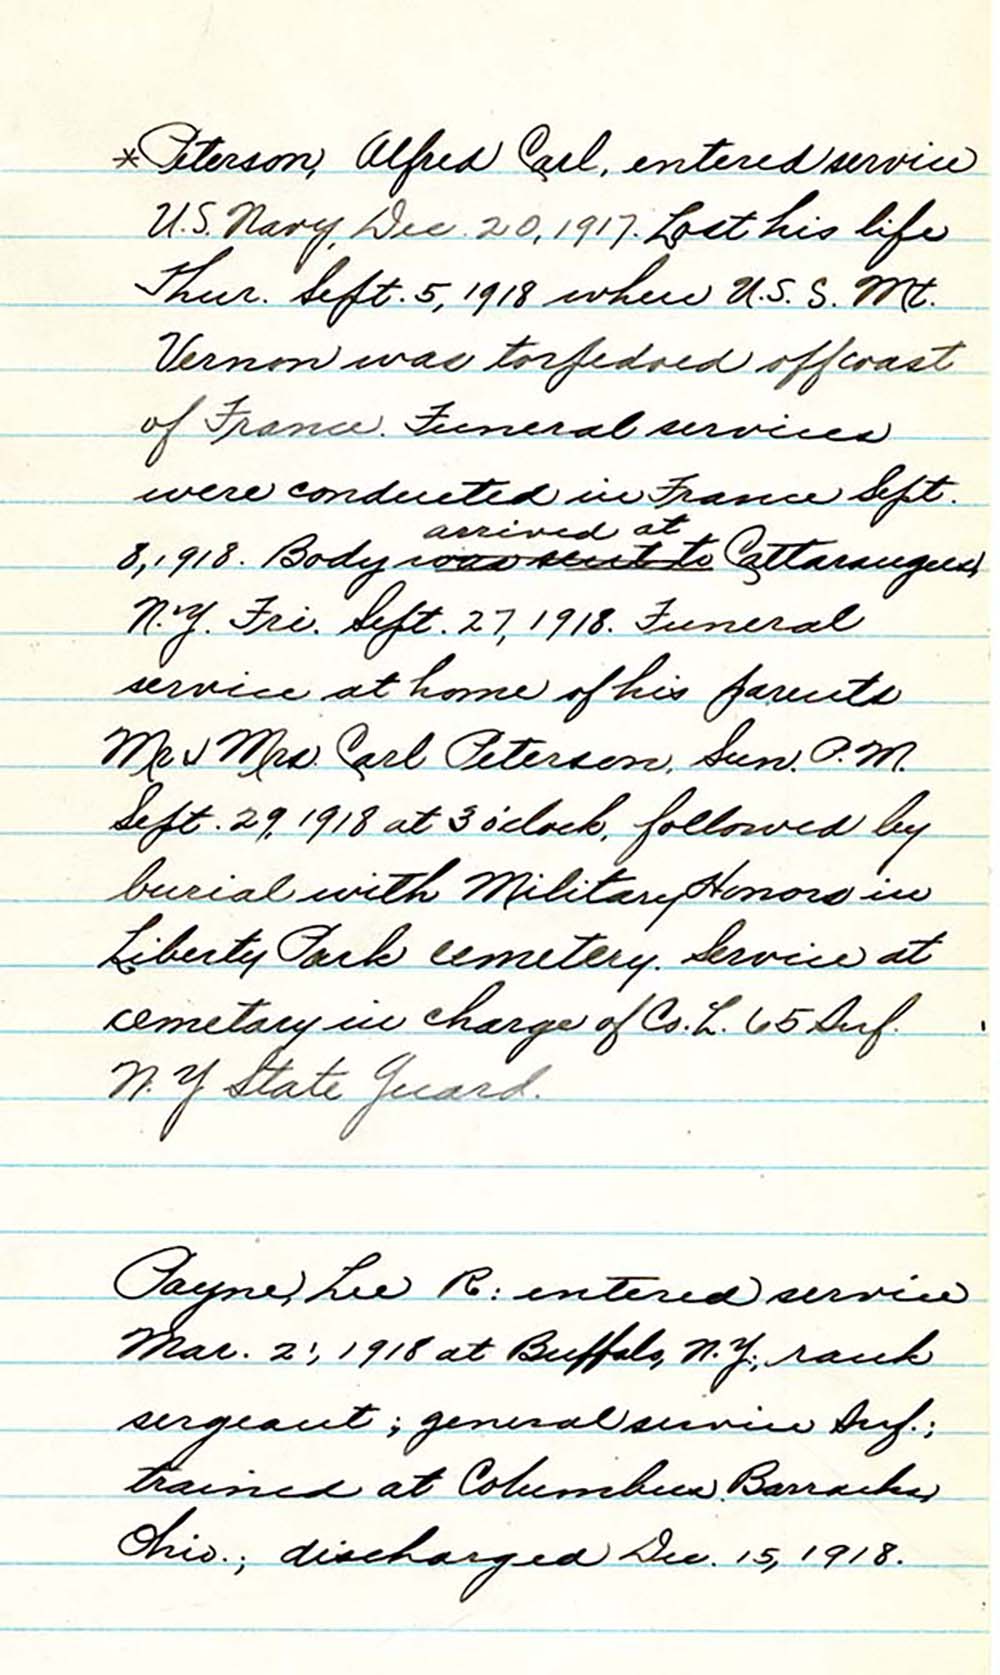 * Peterson, Alfred Carl, entered service
U.S. Navy, Dec. 20, 1917. Lost his life
Thur. Sept. 5, 1918 when U.S.S. Mt.
Vernon was torpedoed off coast
of France. Funeral services
were conducted in France Sept.
arrived at
8, 1918. Body was sent to Cattaraugus,
N.Y. Fri. Sept. 27, 1918. Funeral
service at home of his parents
Mr & Mrs. Carl Peterson, Sun. P.M.
Sept. 29, 1918 at 3 o'clock, followed by
burial with Military Honors in
Liberty Park cemetery. Service at
cemetary in charge of Co. L. 65 Inf.
N.Y State Guard.
Payne, Lee R: entered service
Mar. 2, 1918 at Buffalo, N.Y.; rank
sergeant; general service Inf.;
trained at Columbus Barracks,
Ohio.; discharged Dec. 15, 1918.